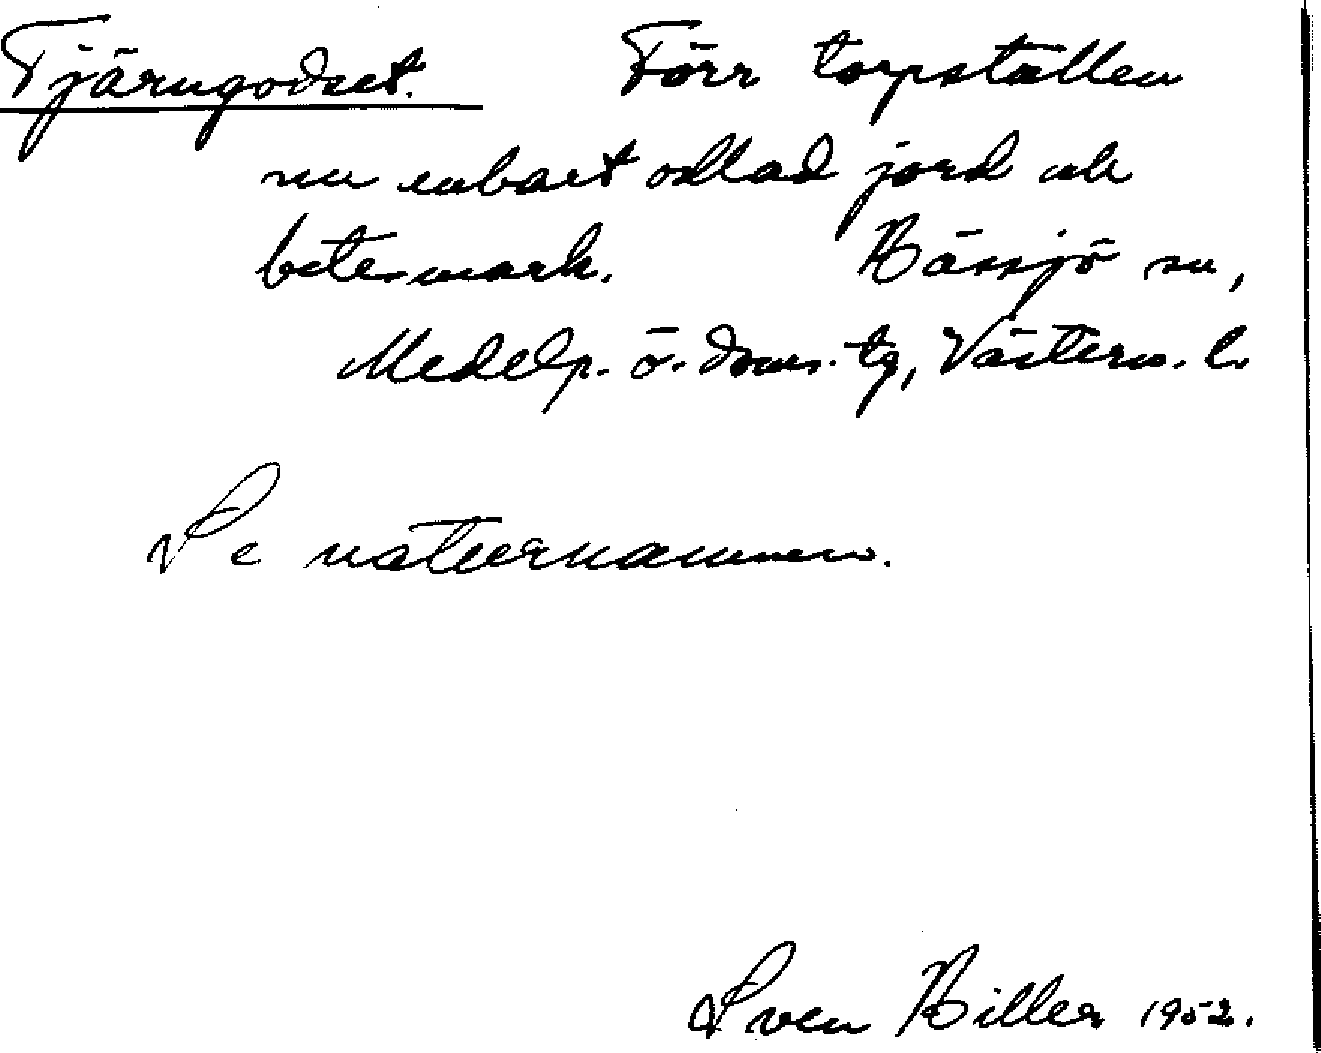 Tjärngodset. Förr torpställen
nu enbart odlad jord och
betesmark. Hässjö sn,
Medelp. ö. doms. tg, Västern. l.
Se naturnamnen.
Sven Hiller 1952.